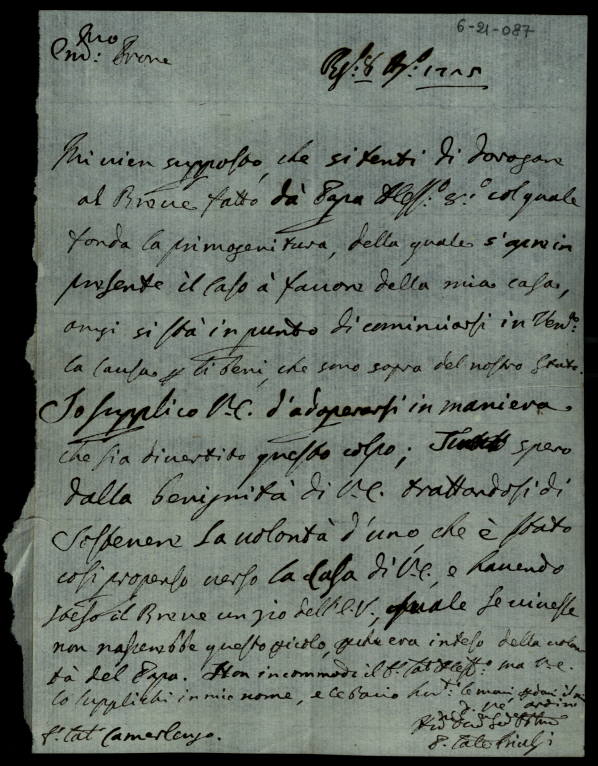 6-21-087
Em.mo
Prone
1715
Mi vien supposto, che si tenti di derogare
al Breve fatto dà Papa Aless.o 8.o col quale
fonda la primogenitura, della quale s'apre in
presente il caso à favore della mia casa,
anzi si stà in punto di cominciarsi in Ven.a
la causa li beni, che sono sopra del nostro Stato.
Io supplico V.E. d'adoperarsi in maniera
che sia divertito questo colpo; spero
dalla benignità di V.E. trattandosi di
sostenere la volontà d'uno, che è stato
così propenso verso la Casa di V.E., e havendo
steso il Breve un zio dell'E.V., quale se vivesse
non nascerebbe questo che era inteso della volon
tà del Papa. Non incommodi il ma V.E.
lo supplichi in mio nome, e le bacio le mani,
Camerlengo.